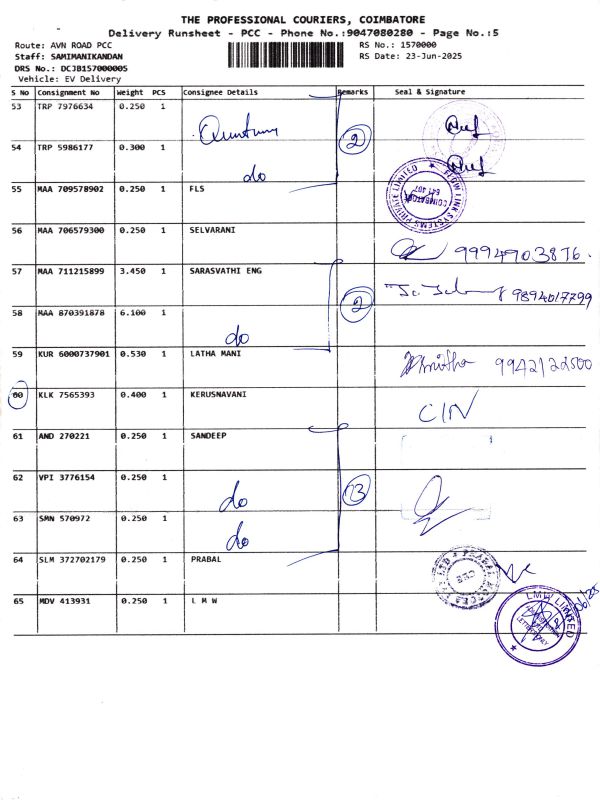 THE PROFESSIONAL COURIERS, COIMBATORE
Delivery Runsheet - PCC - Phone No.:9047080280 - Page No.:5
Route: AVN ROAD PCC RS No.: 1570000
Staff: SAMIMANIKANDAN RS Date: 23-Jun-2025
DRS No.: DCJB157000005
Vehicle: EV Delivery
S No Consignment No Weight PCS Consignee Details Remarks Seal & Signature
53 TRP 7976634 0.250 1
2
54 TRP 5986177 0.300 1
do
55 MAA 709578902 0.250 1 FLS
FLOW LINK SYSTEMS PRIVATE LIMITED COIMBATORE 641 407
56 MAA 706579300 0.250 1 SELVARANI
9994903876.
57 MAA 711215899 3.450 1 SARASVATHI ENG
2 9894017799
58 MAA 870391878 6.100 1
do
59 KUR 6000737901 0.530 1 LATHA MANI
9942122500
60 KLK 7565393 0.400 1 KERUSNAVANI
CIN
61 AND 270221 0.250 1 SANDEEP
62 VPI 3776154 0.250 1
do 3
63 SMN 570972 0.250 1
do
64 SLM 372702179 0.250 1 PRABAL
65 MDV 413931 0.250 1 L M W
LMW LIMITED